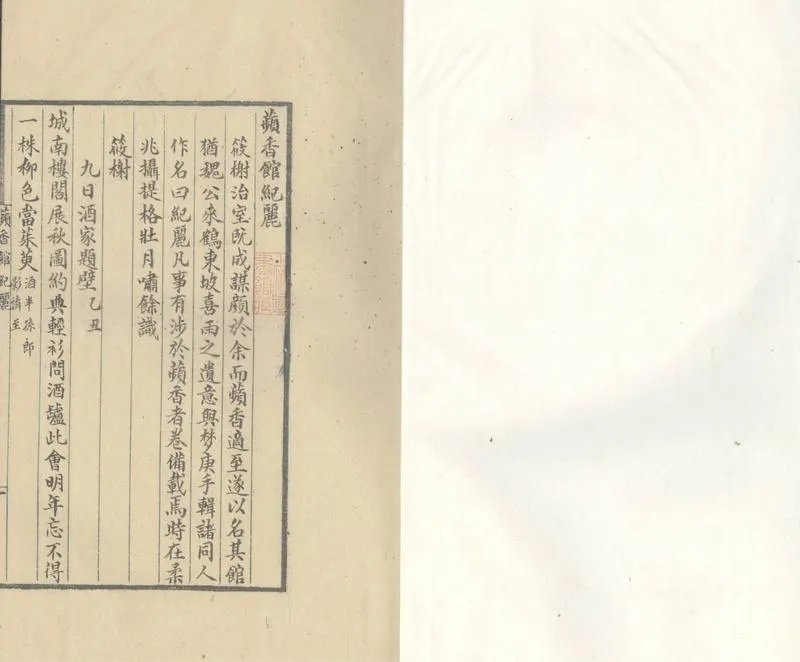 蘋香館紀麗
筱榭治室既成謀顏於余而蘋香適至遂以名其館
猶魏公來鶴東坡喜雨之遺意與梦庚手輯諸同人
作名曰紀麗凡事有涉於蘋香者卷備載焉時在柔
兆攝提格壯月嘯餘識
筱榭
九日酒家題壁乙丑
城南樓閣展秋圖約典輕衫問酒壚此會明年忘不得
一株柳色當茱萸酒半孫郎
影憐至
蘋香館紀麗
一